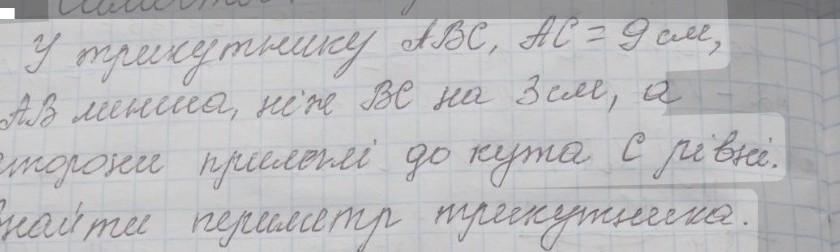 У трикутнику ABC, AC = 9 см,
AB менша, ніж BC на 3 см, а
сторони прилеглі до кута C рівні.
Знайти периметр трикутника.